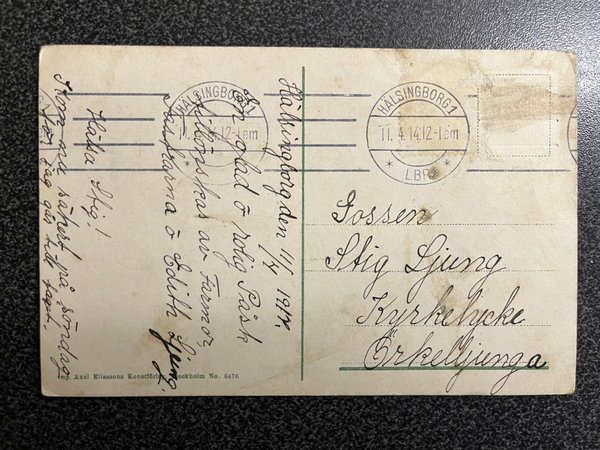 Hälsingborg den 11/4 1914.
En glad o rolig Påsk
tillönskas av Farmor,
o Edith Ljung.
Hälsa Stig!
Kom nu säkert på söndag
jag går till
HÄLSINGBORG 1
11. 4. 14. 12-1 em
HÄLSINGBORG 1
11. 4. 14. 12-1 em
* LBR *
Gossen
Stig Ljung
Kyrkelycke
Örkelljunga
Imp. Axel Eliassons Konstförlag, Stockholm No. 6476